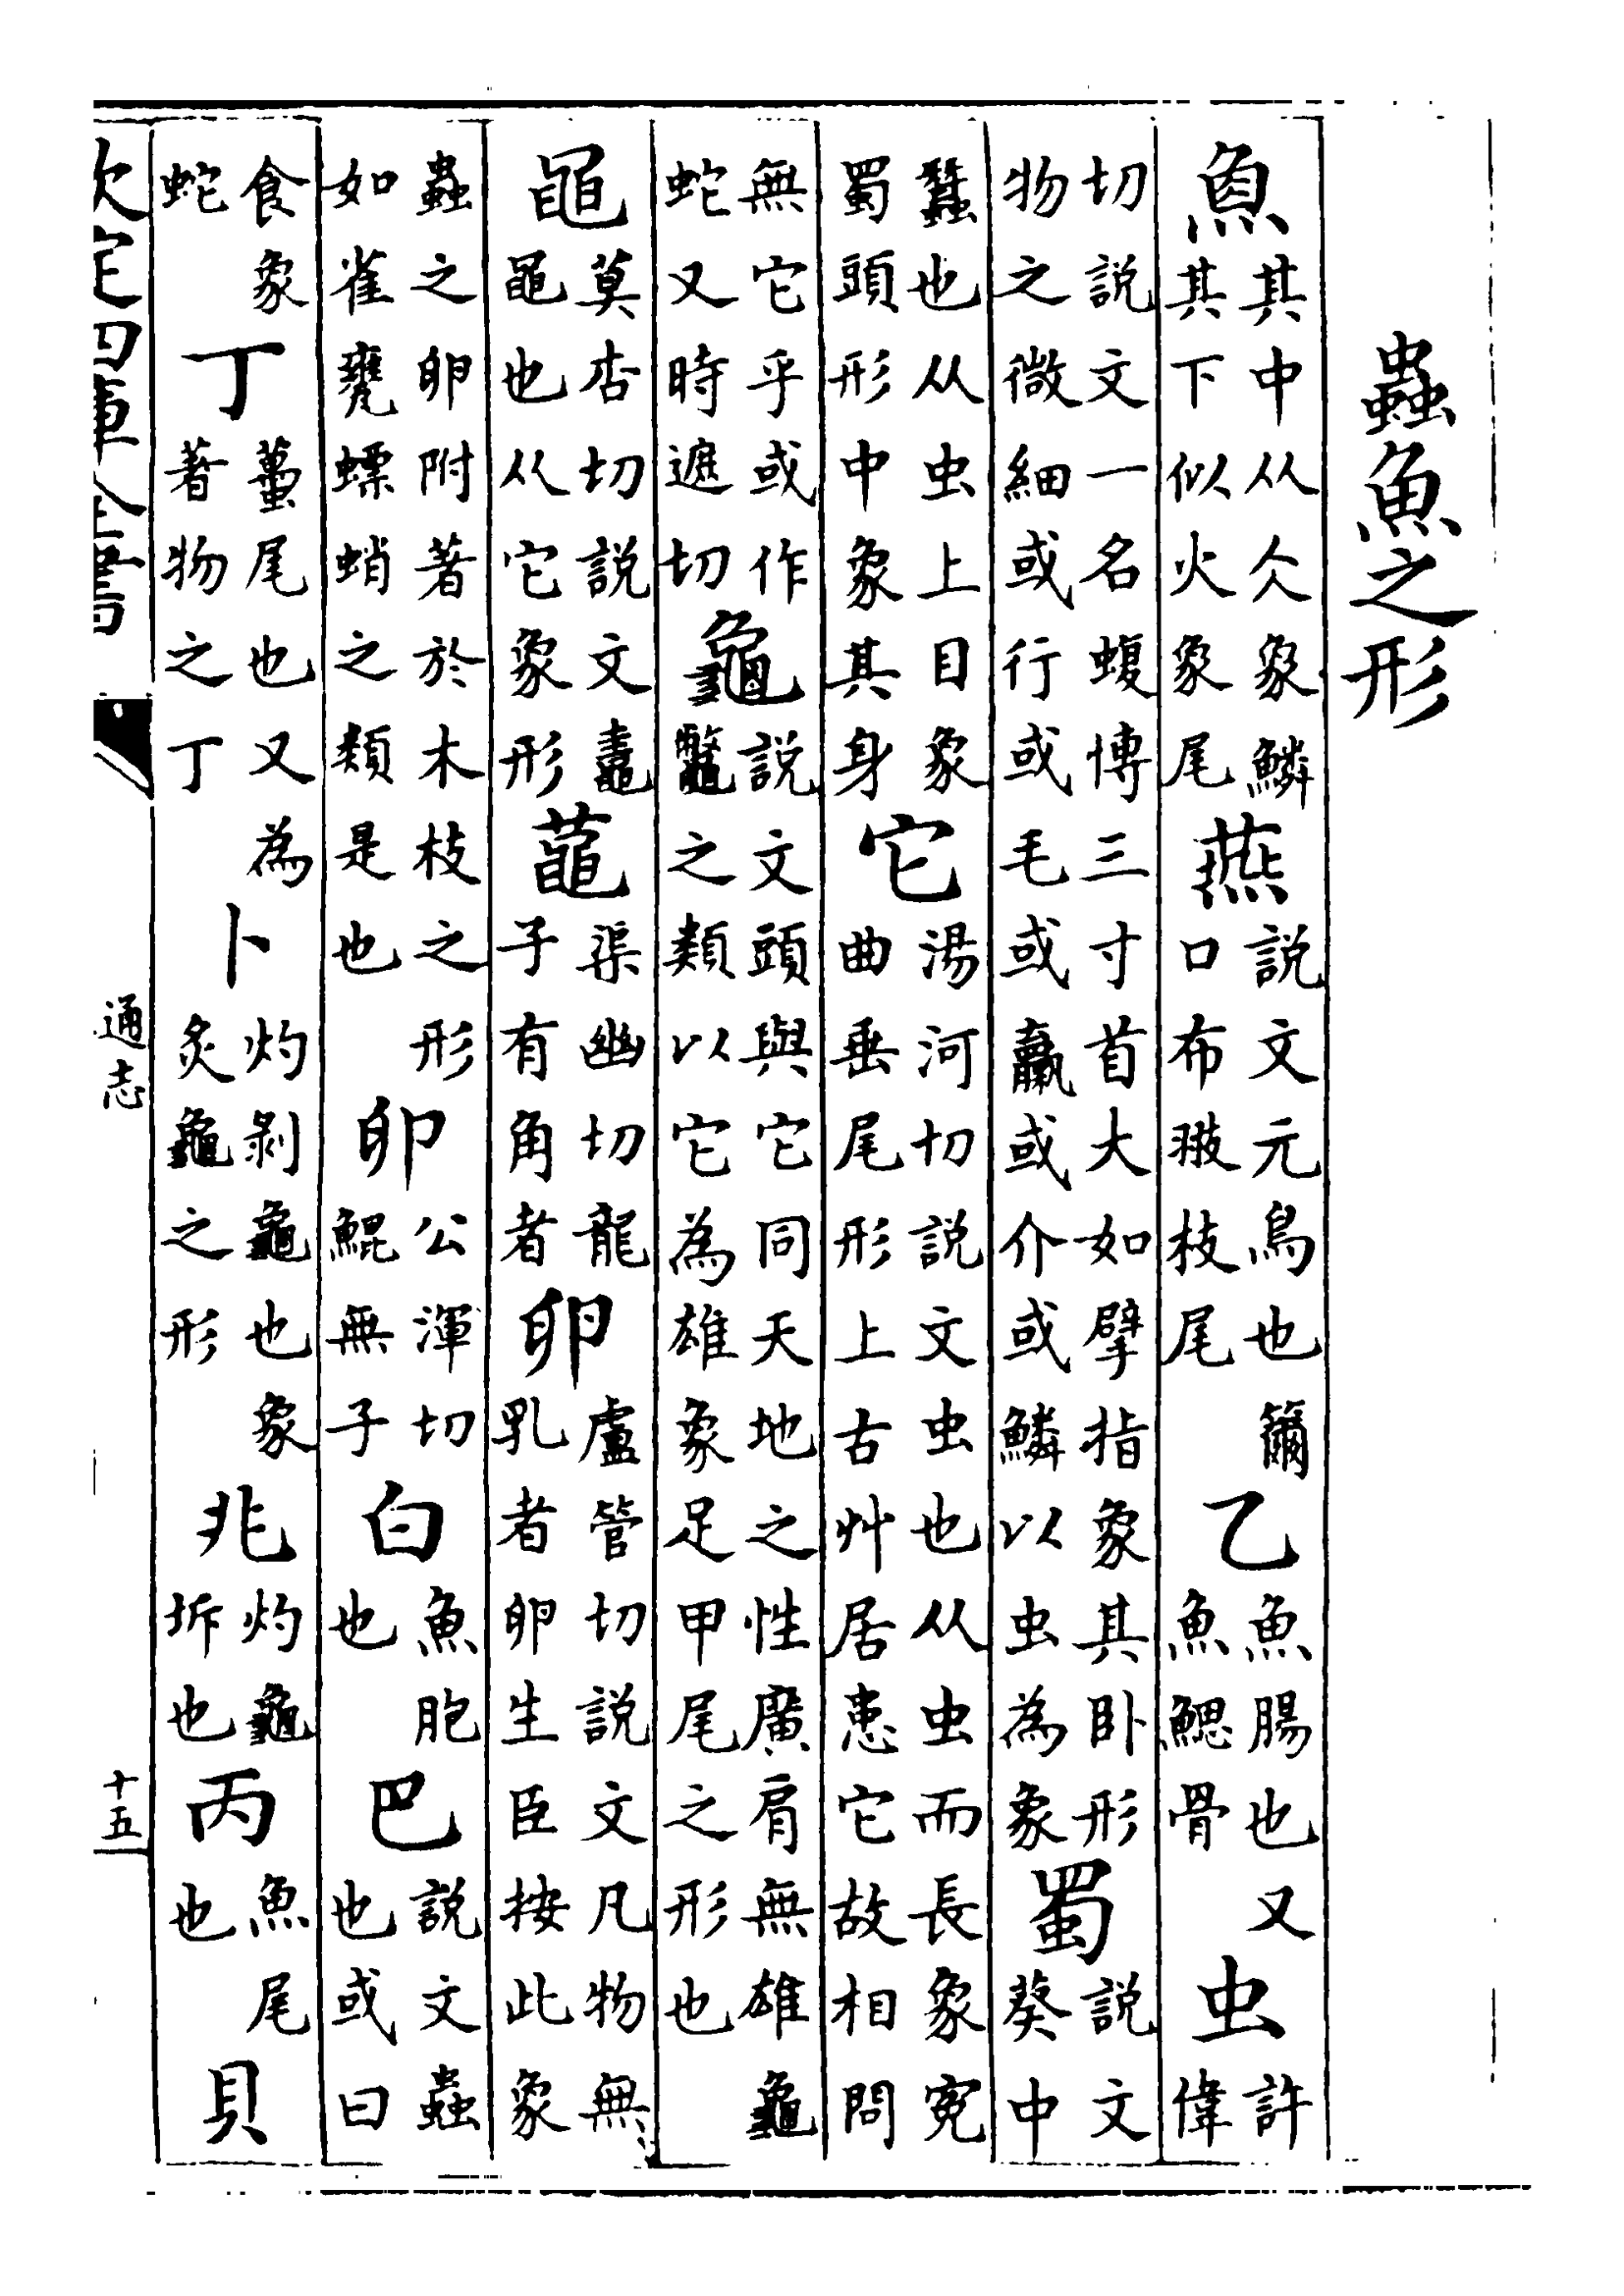 蟲魚之形
魚其中从仌象鱗其下似火象尾燕說文元鳥也籋口布翍枝尾乙魚腸也又魚鰓骨虫許偉
切說文一名蝮博三寸首大如擘指象其卧形物之微細或行或毛或蠃或介或鱗以虫為象蜀說文葵中
蠶也从虫上目象蜀頭形中象其身它湯河切說文虫也从虫而長象寃曲垂尾形上古艸居患它故相問
無它乎或作蛇又時遮切龜說文頭與它同天地之性廣肩無雄龜鼈之類以它為雄象足甲尾之形也
黽莫杏切說文鼃黽也从它象形渠幽切龍子有角者卵盧管切說文凡物無乳者卵生臣按此象
蟲之卵附著於木枝之形如雀甕螵蛸之類是也公渾切鯤無子白魚胞也巴說文蟲也或曰
食象蛇丁蠆尾也又為著物之丁卜灼剝龜也象炙龜之形兆灼龜坼也丙魚尾也貝
欽定四庫全書
通志
十五